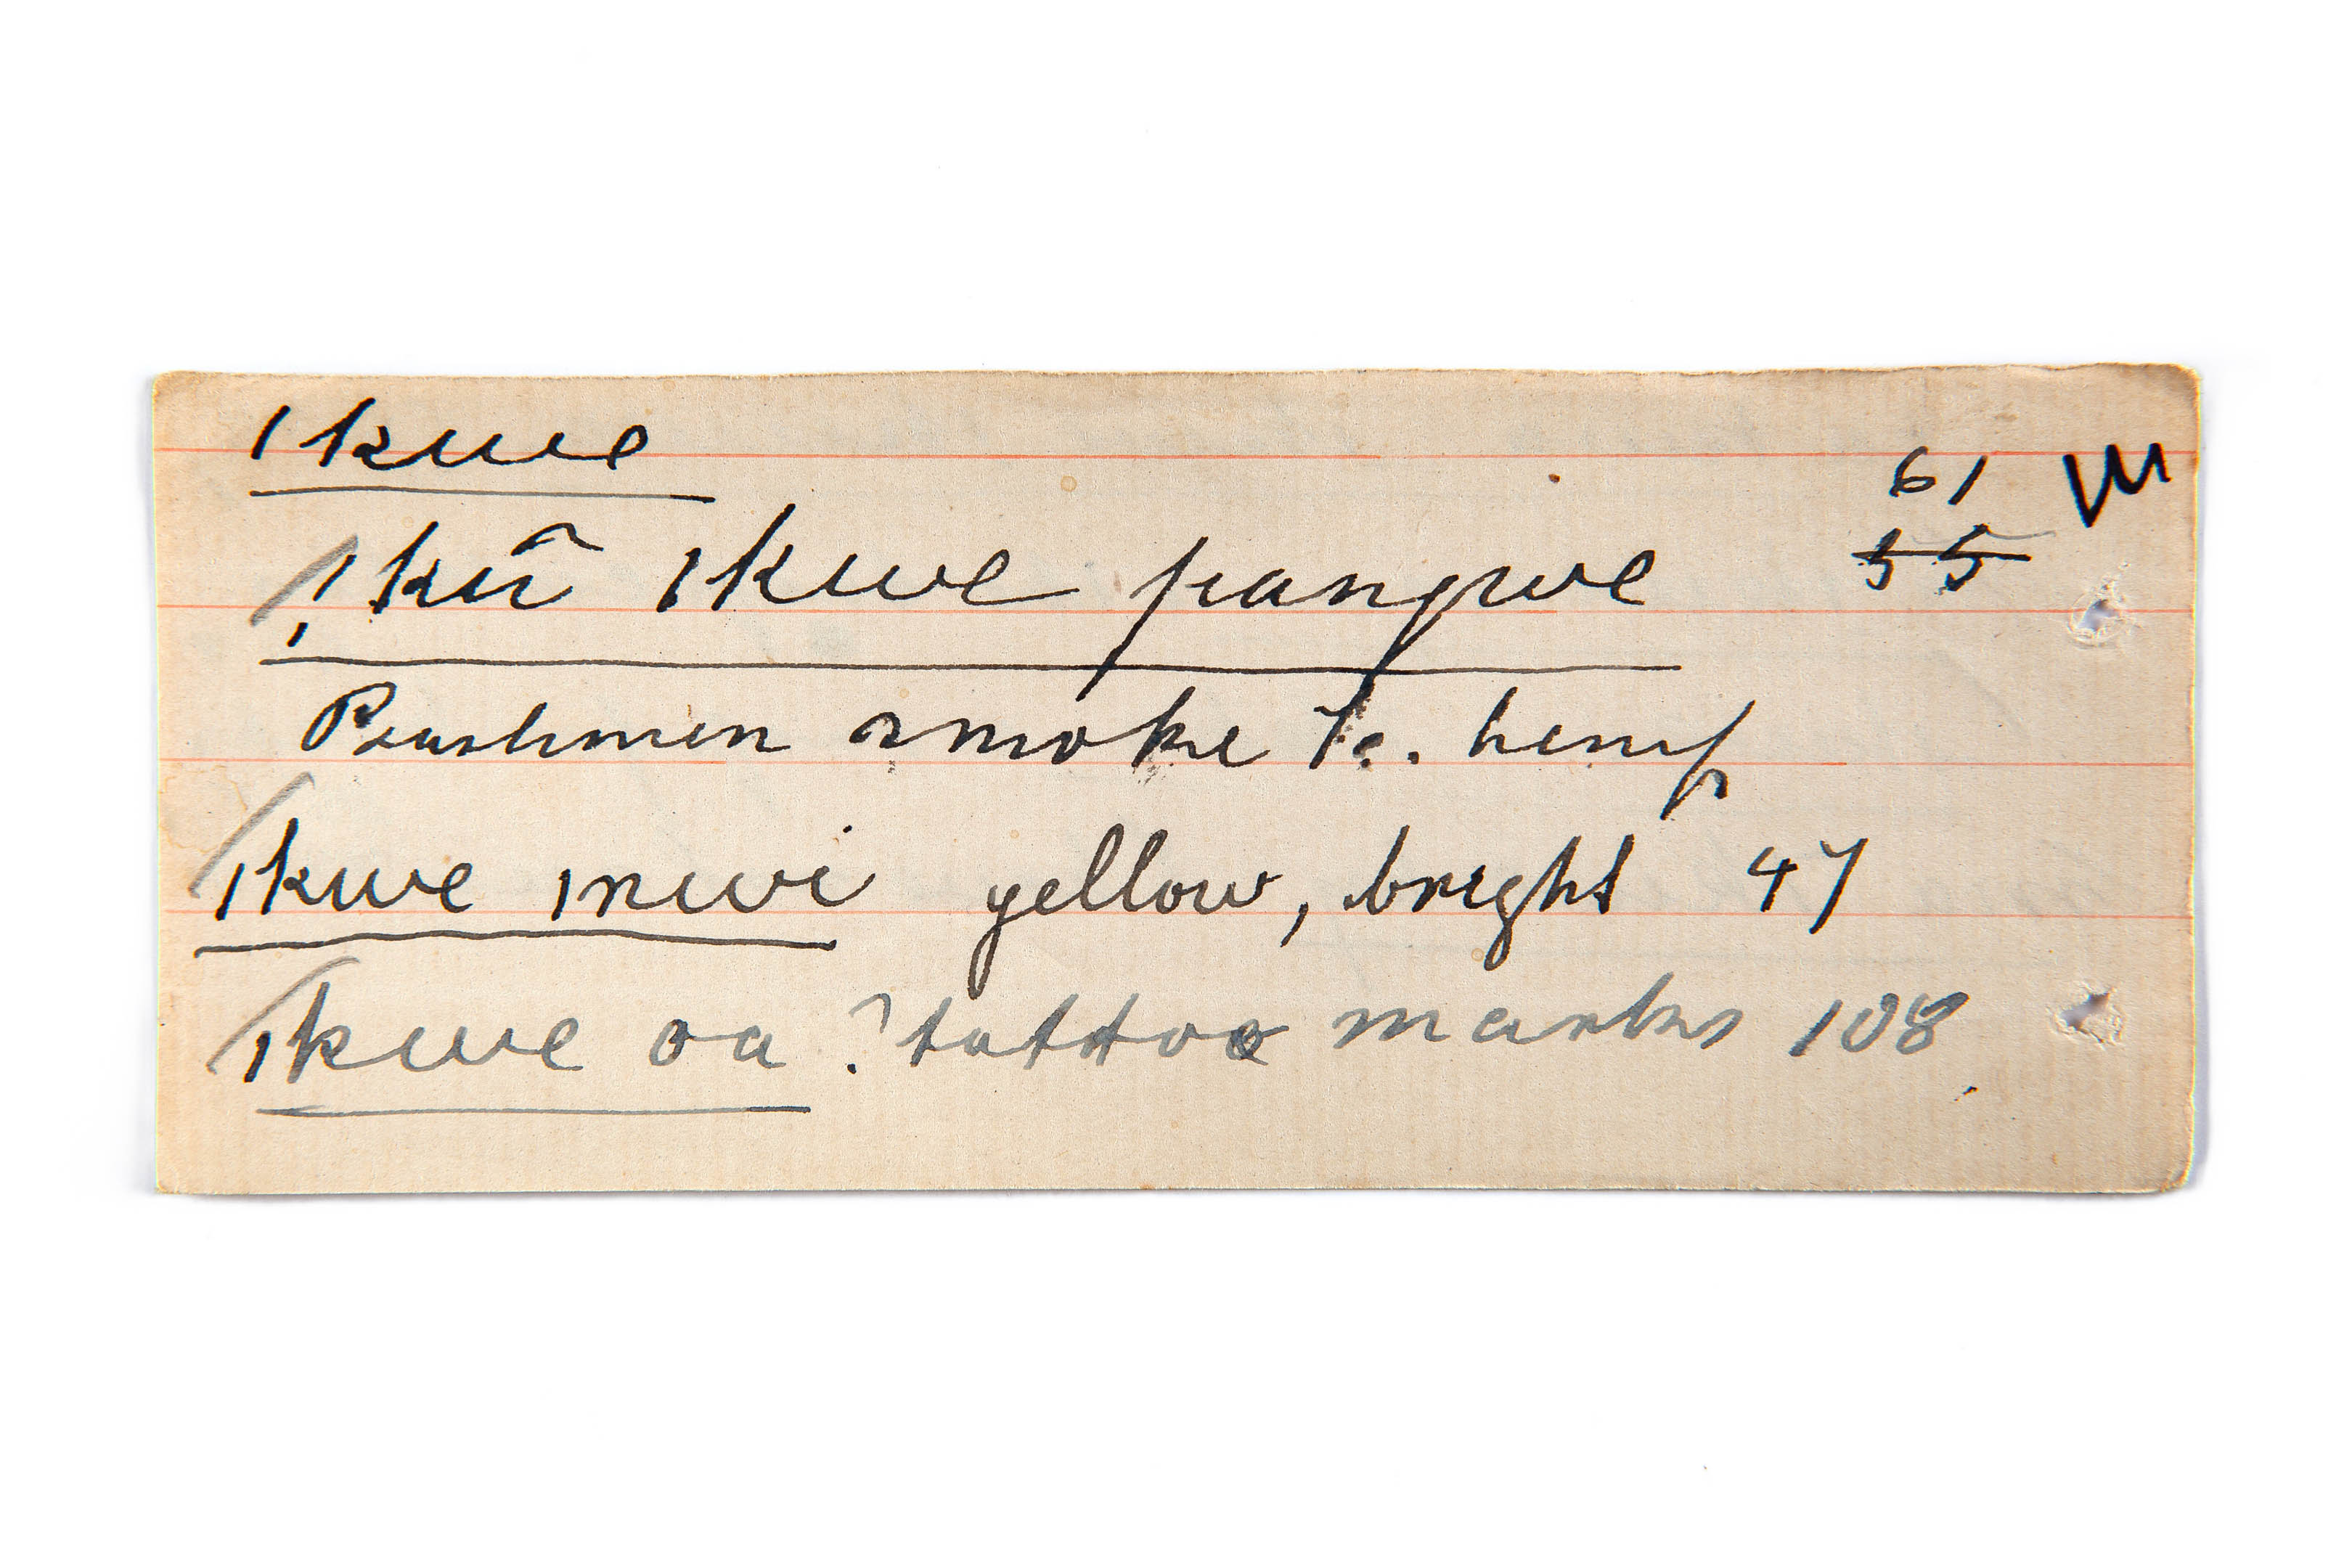 ǀkwe
ǃkũ ǀkwe pangwe 61 W
55
Bushmen smoke hemp
ǀkwe ǀnwi yellow, bright 47
ǀkwe oa ? tattoo marks 108